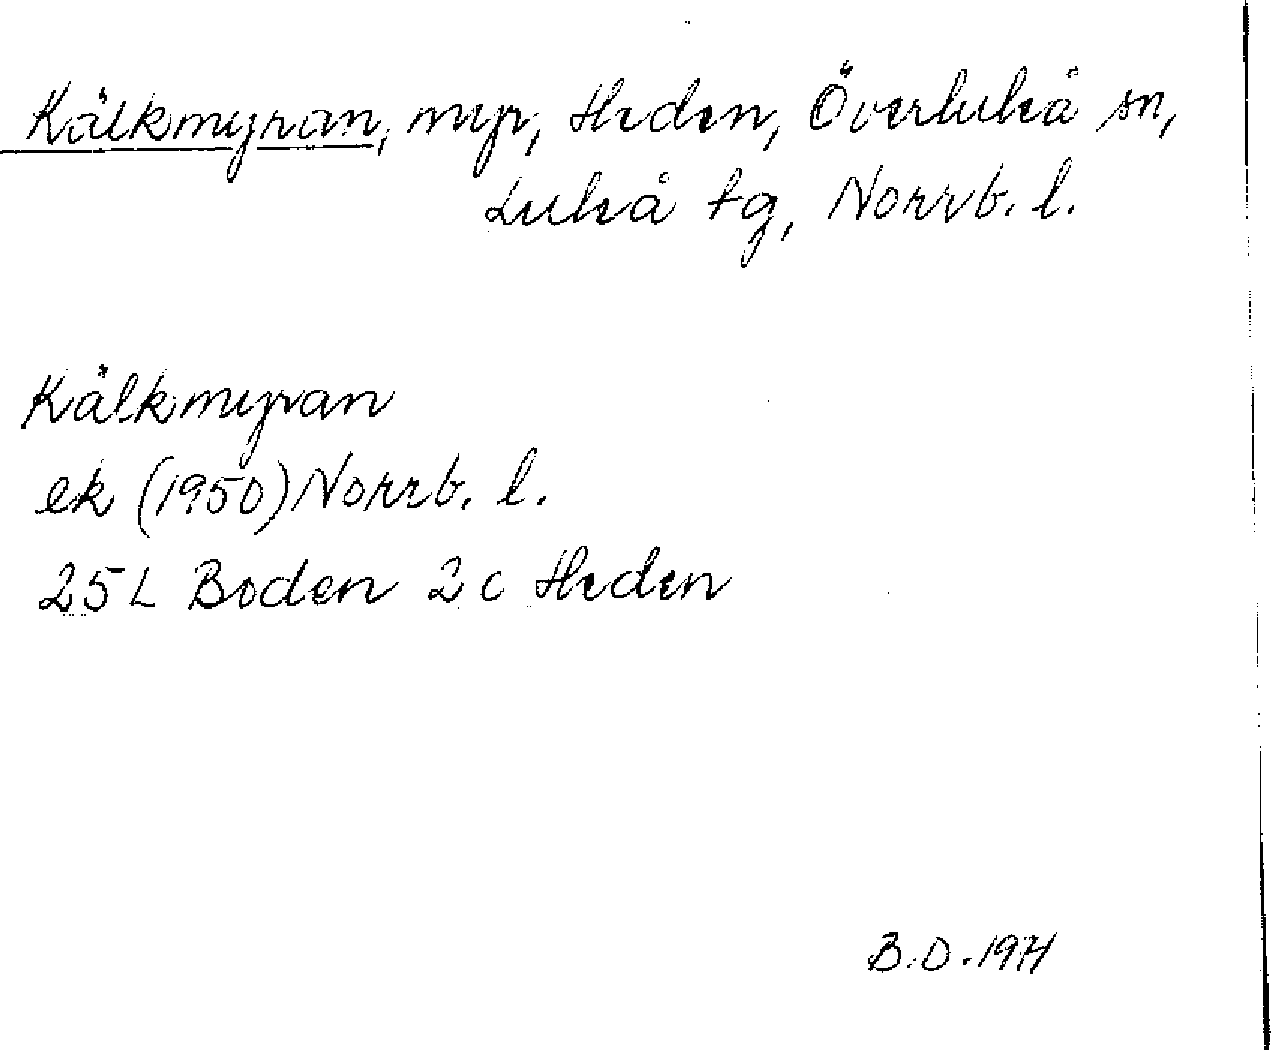 Kälkmyran, myr, Heden, Överluleå sn,
Luleå tg, Norrb. l.
Kälkmyran
ek (1950) Norrb. l.
25 L Boden 2 c Heden
B.D. 1974